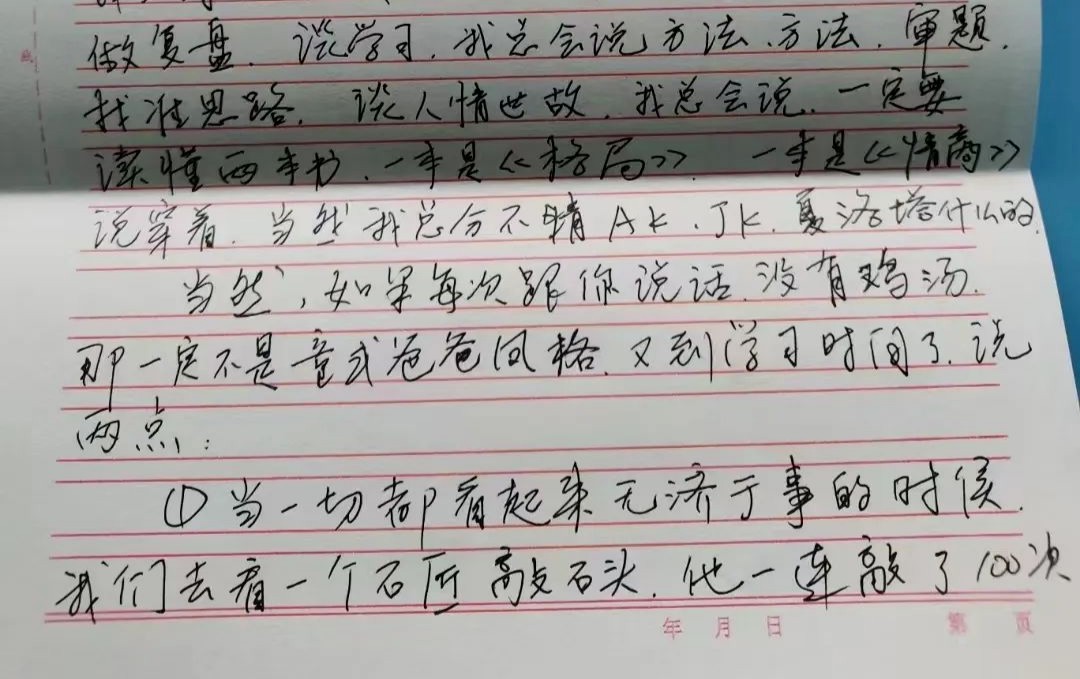 做复盘. 谈学习, 我总会说方法、方法, 审题,
找准思路. 谈人情世故, 我总会说, 一定要
读懂两本书, 一本是《格局》, 一本是《情商》
说穿着, 当然我总分不清AK、JK、夏洛塔什么的,
当然, 如果每次跟你说话, 没有鸡汤,
那一定不是童式爸爸风格, 又到学习时间了, 说
两点:
①当一切都看起来无济于事的时候,
我们去看一个石匠敲石头, 他一连敲了100次
年 月 日 第 页